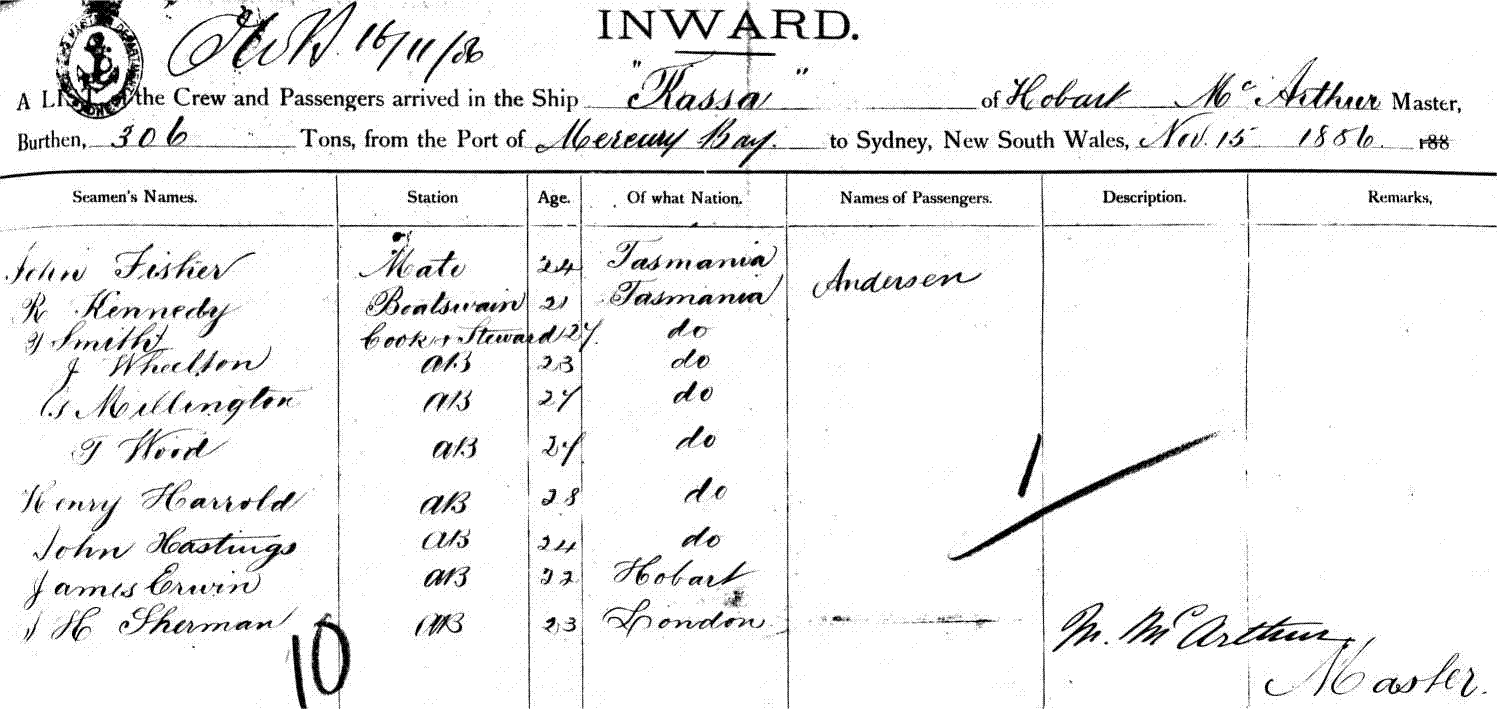 INWARD.
16/11/86
A LIST of the Crew and Passengers arrived in the Ship "Kassa" of Hobart Mc Arthur Master,
Burthen, 306 Tons, from the Port of Mercury Bay. to Sydney, New South Wales, Nov. 15 1886 188
Seamen's Names. Station Age. Of what Nation. Names of Passengers. Description. Remarks,
John Fisher Mate 24 Tasmania Andersen
R Kennedy Boatswain 21 Tasmania
Smith Cook & Steward 27 do
J Wheelton AB 23 do
Millington AB 27 do
T Wood AB 27 do
1
Henry Harrold AB 28 do
John Hastings AB 24 do
James Erwin AB 22 Hobart
H Sherman AB 23 London
10
M. Mc Arthur
Master.